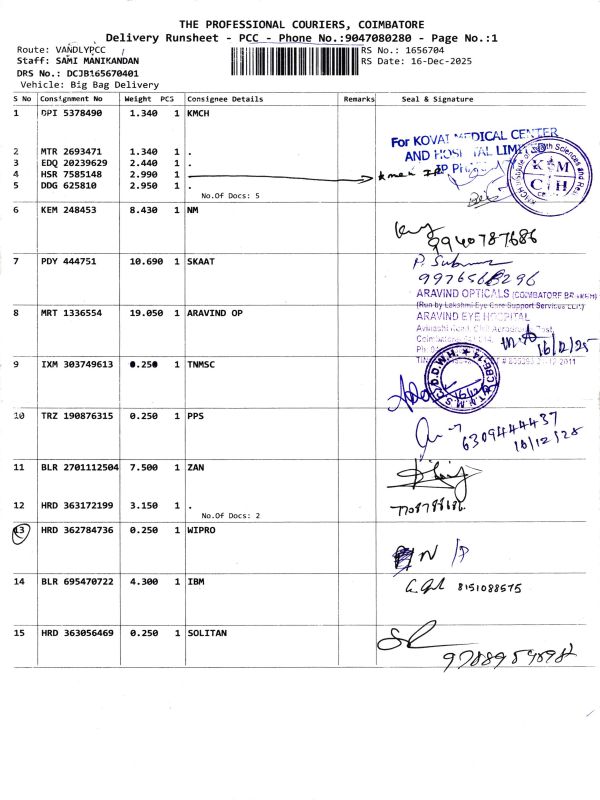 THE PROFESSIONAL COURIERS, COIMBATORE
Delivery Runsheet - PCC - Phone No.:9047080280 - Page No.:1
Route: VANDLYPCC
RS No.: 1656704
Staff: SAMI MANIKANDAN
RS Date: 16-Dec-2025
DRS No.: DCJB165670401
Vehicle: Big Bag Delivery
S No Consignment No Weight PCS Consignee Details Remarks Seal & Signature
1 DPI 5378490 1.340 1 KMCH
For KOVAI MEDICAL CENTER
AND HOSPITAL LIMITED
2 MTR 2693471 1.340 1 .
3 EDQ 20239629 2.440 1 .
4 HSR 7585148 2.990 1 .
5 DDG 625810 2.950 1 .
No.Of Docs: 5
6 KEM 248453 8.430 1 NM
9940787686
7 PDY 444751 10.690 1 SKAAT
9976568296
ARAVIND OPTICALS (COIMBATORE BR
(Run by Lakshmi Eye Care Support Services LLP)
8 MRT 1336554 19.050 1 ARAVIND OP
ARAVIND EYE HOSPITAL
16/12/25
9 IXM 303749613 0.250 1 TNMSC
10 TRZ 190876315 0.250 1 PPS
6309444437
16/12/25
11 BLR 2701112504 7.500 1 ZAN
12 HRD 363172199 3.150 1 .
No.Of Docs: 2
13 HRD 362784736 0.250 1 WIPRO
14 BLR 695470722 4.300 1 IBM
8151088575
15 HRD 363056469 0.250 1 SOLITAN